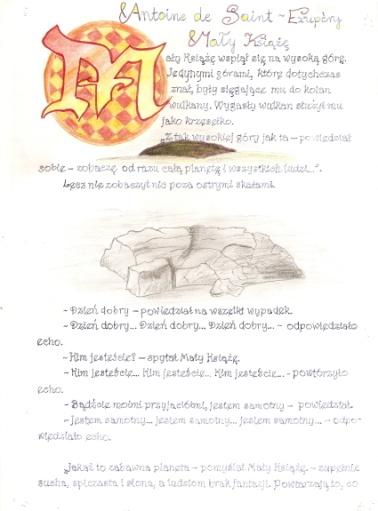 Antoine de Saint-Exupéry
Mały Książę
Mały Książę wspiął się na wysoką górę.
Jedynymi górami, które dotychczas
znał, były sięgające mu do kolan
wulkany. Wygasły wulkan służył mu
jako krzesełko.
„Z tak wysokiej góry jak ta – powiedział
sobie – zobaczę od razu całą planetę i wszystkich ludzi...”.
Lecz nie zobaczył nic poza ostrymi skałami.
- Dzień dobry – powiedział na wszelki wypadek.
- Dzień dobry... Dzień dobry... Dzień dobry... – odpowiedziało
echo.
- Kim jesteście? – spytał Mały Książę.
- Kim jesteście... Kim jesteście... Kim jesteście... – powtórzyło
echo.
- Bądźcie moimi przyjaciółmi, jestem samotny – powiedział.
- Jestem samotny... jestem samotny... jestem samotny... – odpo-
wiedziało echo.
„Jakaż to zabawna planeta – pomyślał Mały Książę. – zupełnie
sucha, spiczasta i słona, a ludziom brak fantazji. Powtarzają to, co